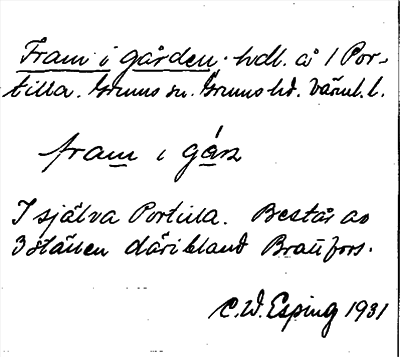 Fram i gården. hdl. å 1 Por-
tilla. Grums sn. Grums hd. Värml. l.
fram i gán
I själva Portilla. Består av
3 ställen däribland Brattfors.
C. W. Esping 1931